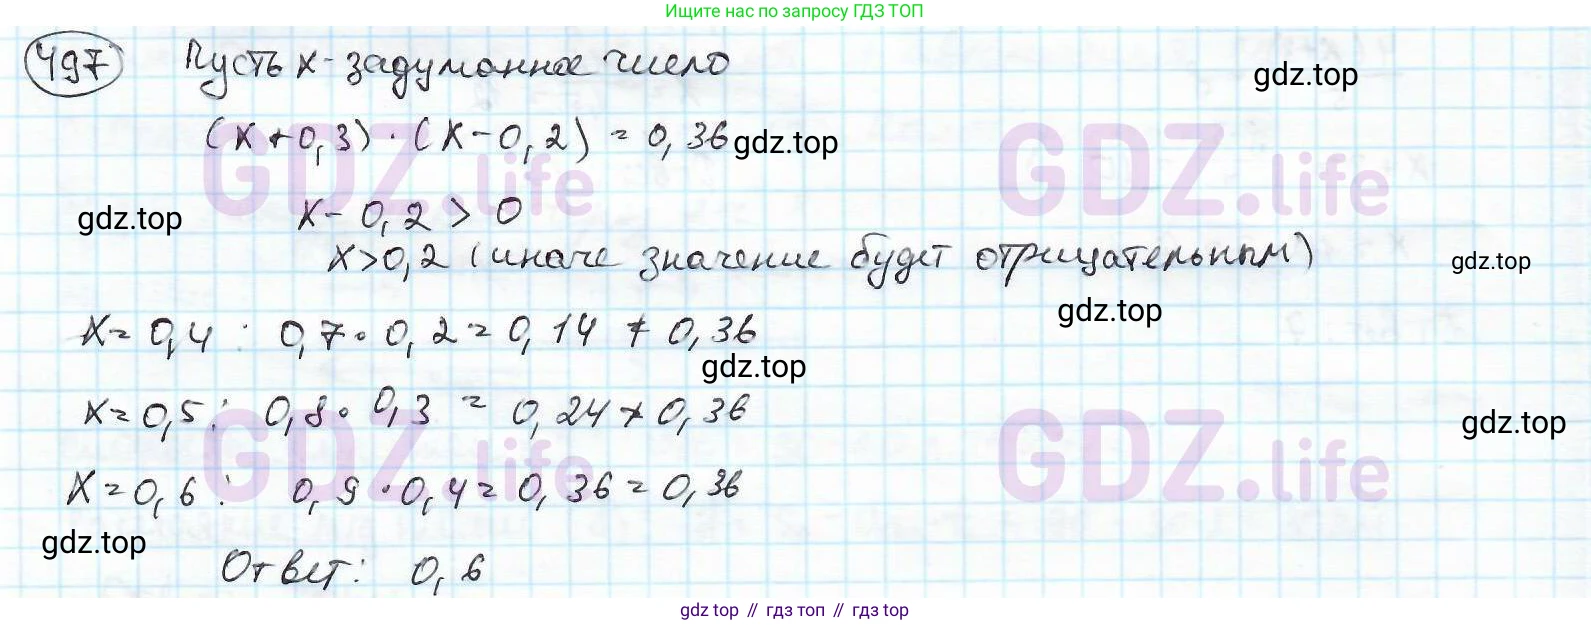 Ищите нас по запросу ГДЗ ТОП
497 Пусть x - задуманное число
gdz.top
(x + 0,3) · (x - 0,2) = 0,36
gdz.top
GDZ.life
GDZ.life
gdz.top
x - 0,2 > 0
x > 0,2 (иначе значение будет отрицательным)
gdz.top
gdz.top
x = 0,4 : 0,7 · 0,2 = 0,14 ≠ 0,36
gdz.top
x = 0,5 : 0,8 · 0,3 = 0,24 ≠ 0,36
gdz.top
GDZ.life
GDZ.life
x = 0,6 : 0,9 · 0,4 = 0,36 = 0,36
gdz.top
Ответ: 0,6
gdz top // гдз топ // гдз top